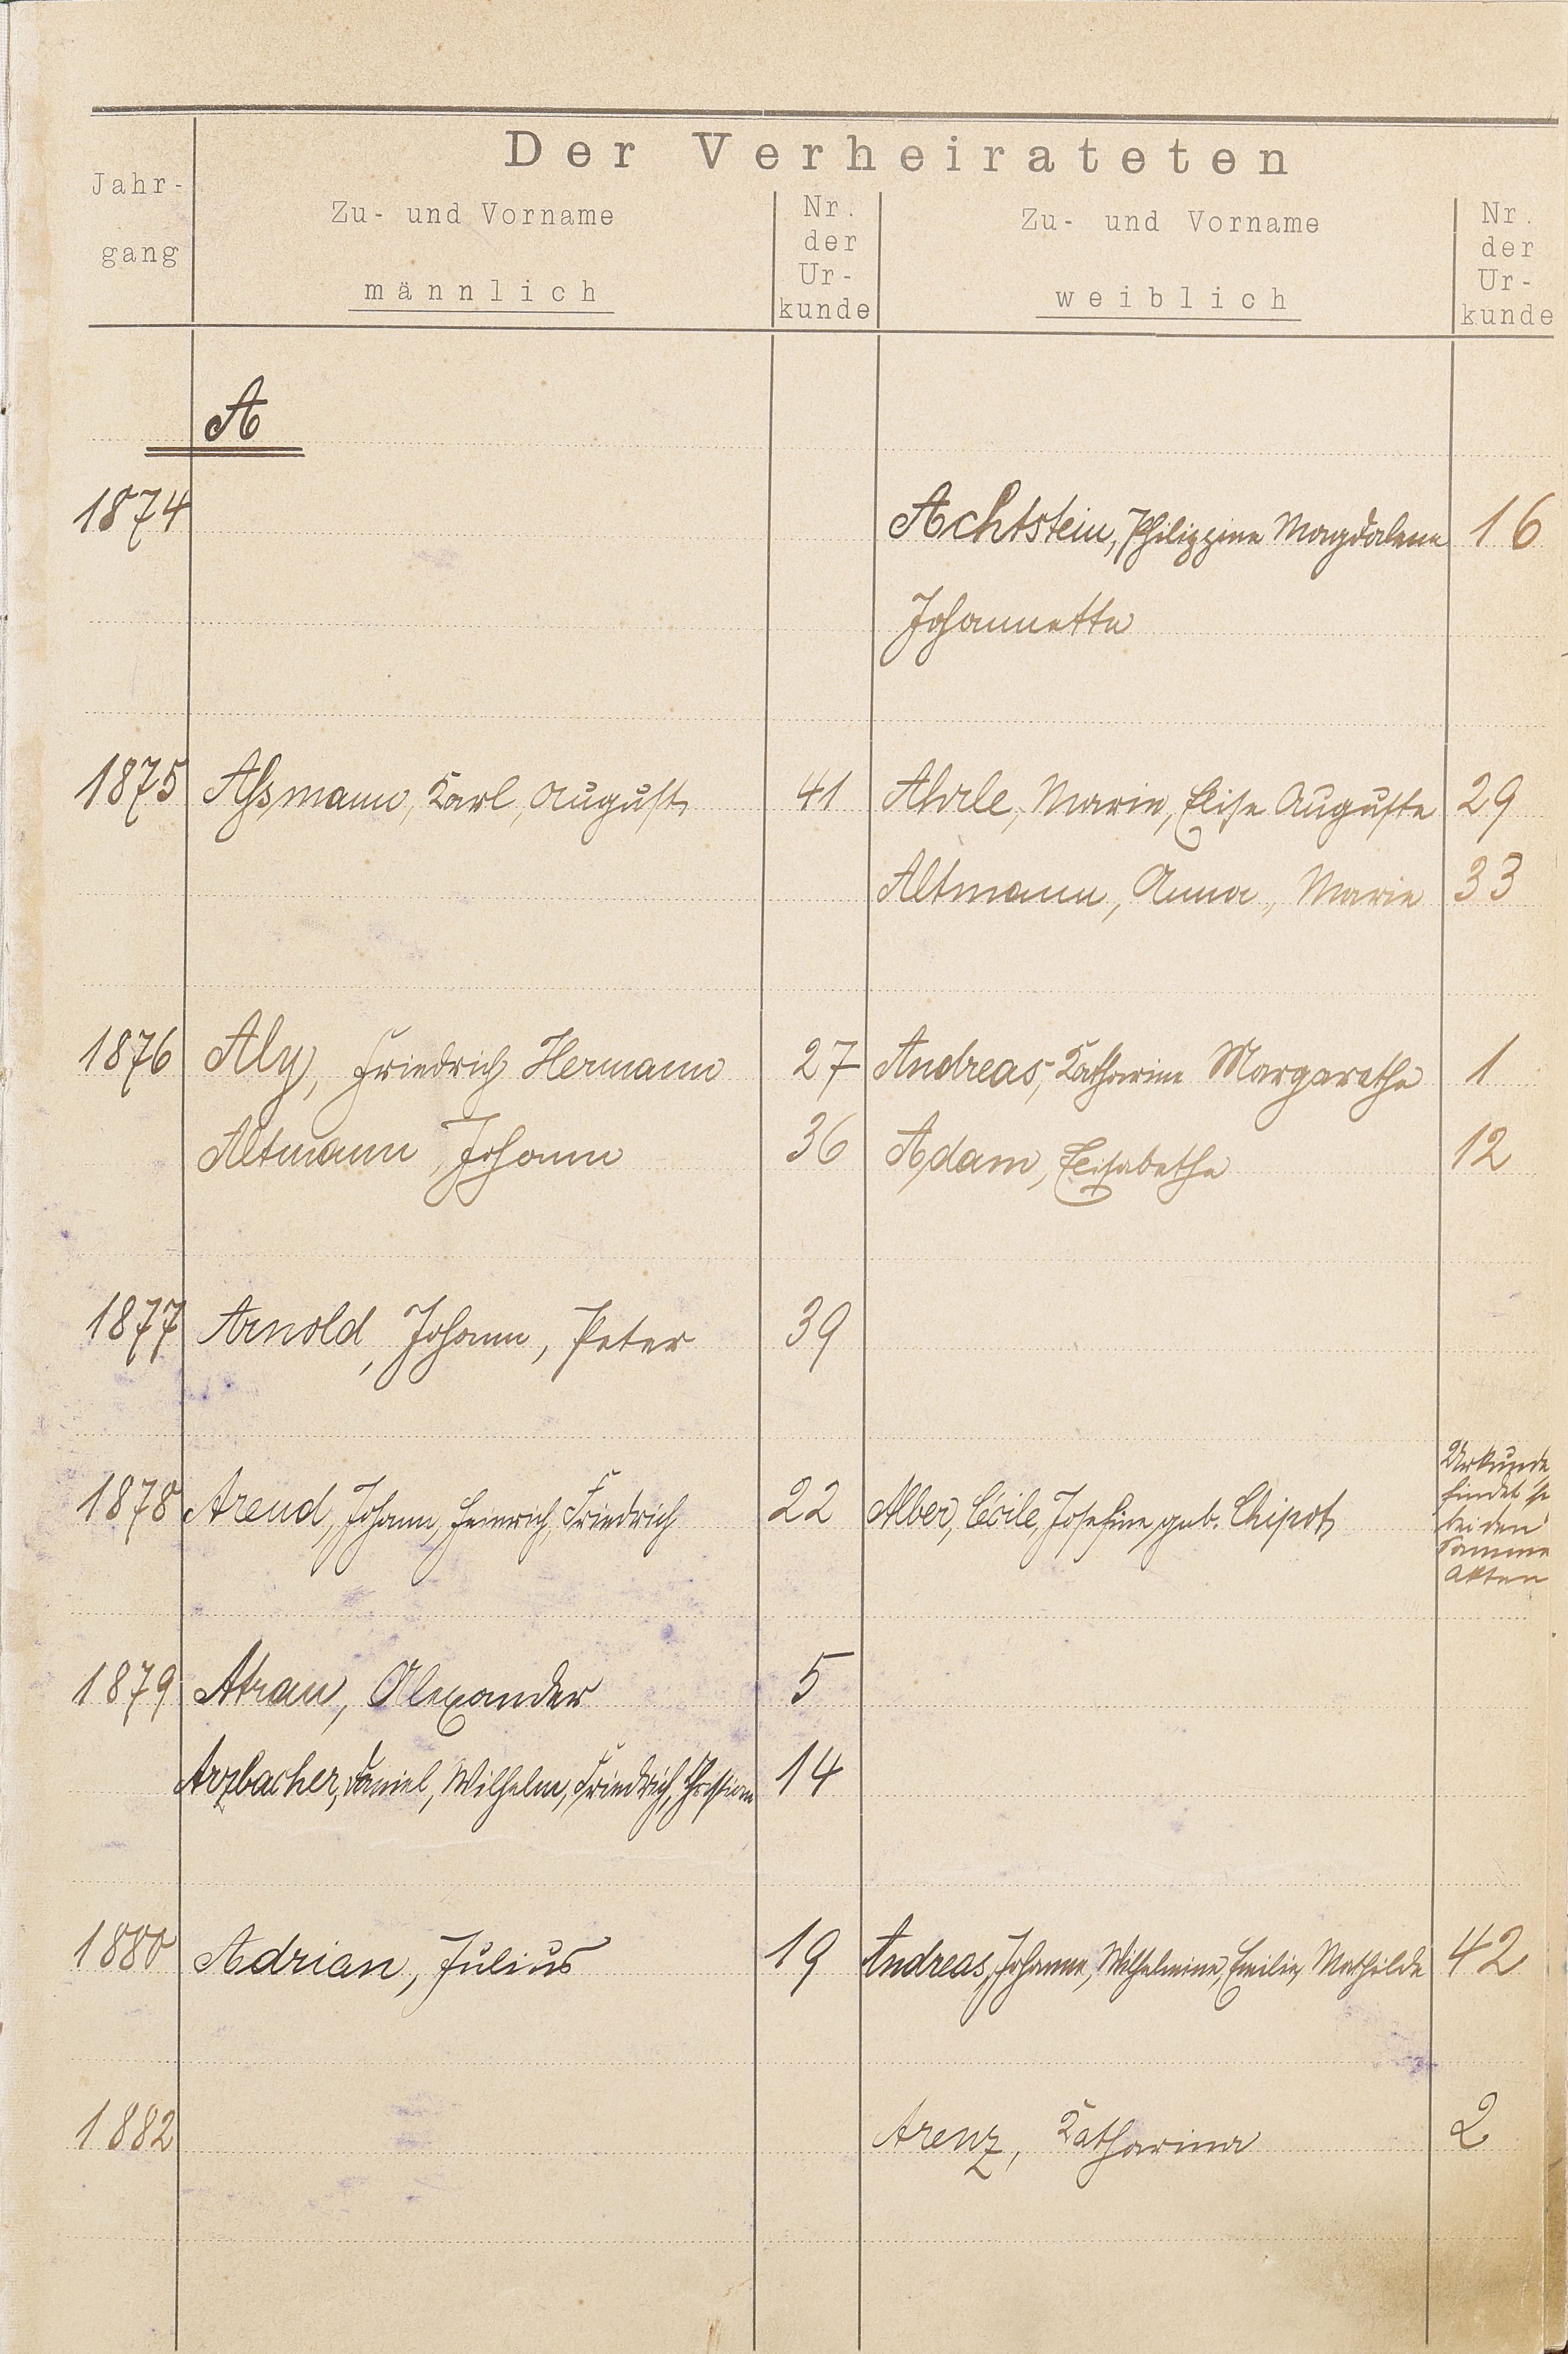 Der Verheirateten
Jahr-
gang
Zu- und Vorname
männlich
Nr.
der
Ur-
kunde
Zu- und Vorname
weiblich
Nr.
der
Ur-
kunde
A
1874 Achtstein, Philippine Magdalena 16
Johannette
1875 Aßmann, Karl, August 41 Ahrle, Marie, Elise Auguste 29
Altmann, Anna, Marie 33
1876 Aly, Friedrich Hermann 27 Andreas, Katharine Margarethe 1
Altmann, Johann 36 Adam, Elisabethe 12
1877 Arnold, Johann, Peter 39
1878 Arend, Johann, Heinrich, Friedrich 22 Alber, Cécile, Josefine, geb. Chipot Urkunde
findet
bei den
Samme
Akten
1879 Atran, Alexander 5
Arzbacher, Daniel, Wilhelm, Friedrich, Christian 14
1880 Adrian, Julius 19 Andreas, Johanna, Wilhelmine, Emilie, Mathilde 42
1882 Arenz, Katharina 2